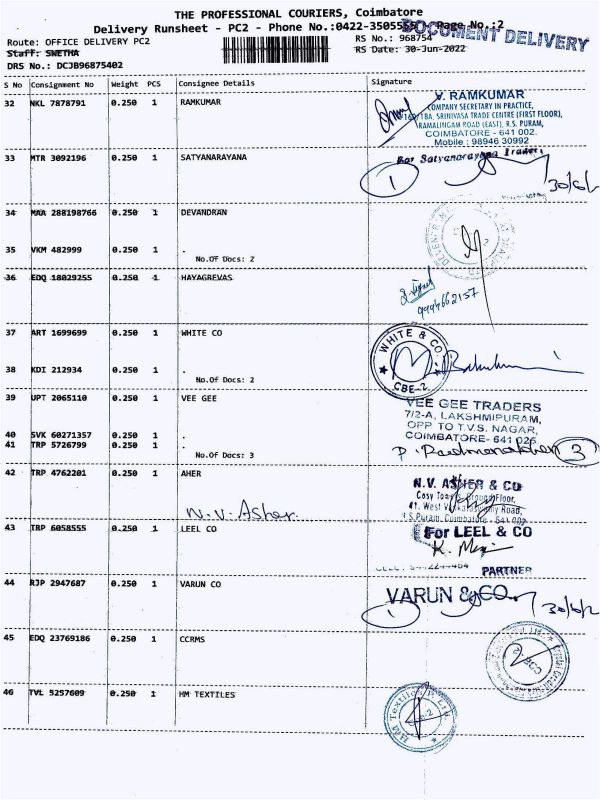 THE PROFESSIONAL COURIERS, Coimbatore
Delivery Runsheet - PC2 - Phone No.:0422-3505555 Page No.:2
DOCUMENT DELIVERY
Route: OFFICE DELIVERY PC2 RS No.: 968754
Staff: SWETHA RS Date: 30-Jun-2022
DRS No.: DCJB96875402
S No Consignment No Weight PCS Consignee Details Signature
32 NKL 7878791 0.250 1 RAMKUMAR
V. RAMKUMAR
COMPANY SECRETARY IN PRACTICE,
SRINIVASA TRADE CENTRE (FIRST FLOOR),
RAMALINGAM ROAD (EAST), R.S. PURAM,
COIMBATORE - 641 002.
Mobile : 98946 30992
33 MTR 3092196 0.250 1 SATYANARAYANA
For Satyanarayana Traders
1
34 MAA 288198766 0.250 1 DEVANDRAN
35 VKM 482999 0.250 1 .
No.Of Docs: 2
36 EDQ 18029255 0.250 1 HAYAGREVAS
9994662157
37 ART 1699699 0.250 1 WHITE CO
WHITE & CO
CBE-2
38 KDI 212934 0.250 1 .
No.Of Docs: 2
39 UPT 2065110 0.250 1 VEE GEE
VEE GEE TRADERS
7/2-A, LAKSHMIPURAM,
OPP TO T.V.S. NAGAR,
COIMBATORE- 641 026
40 SVK 60271357 0.250 1 .
41 TRP 5726799 0.250 1 .
No.Of Docs: 3
3
42 TRP 4762201 0.250 1 AHER
N.V. Asher
N.V. ASHER & CO
41, West
R.S.Puram, Coimbatore - 641 002
43 TRP 6058555 0.250 1 LEEL CO
For LEEL & CO
PARTNER
44 RJP 2947687 0.250 1 VARUN CO
VARUN & CO
1
45 EDQ 23769186 0.250 1 CCRMS
46 TVL 5257609 0.250 1 HM TEXTILES